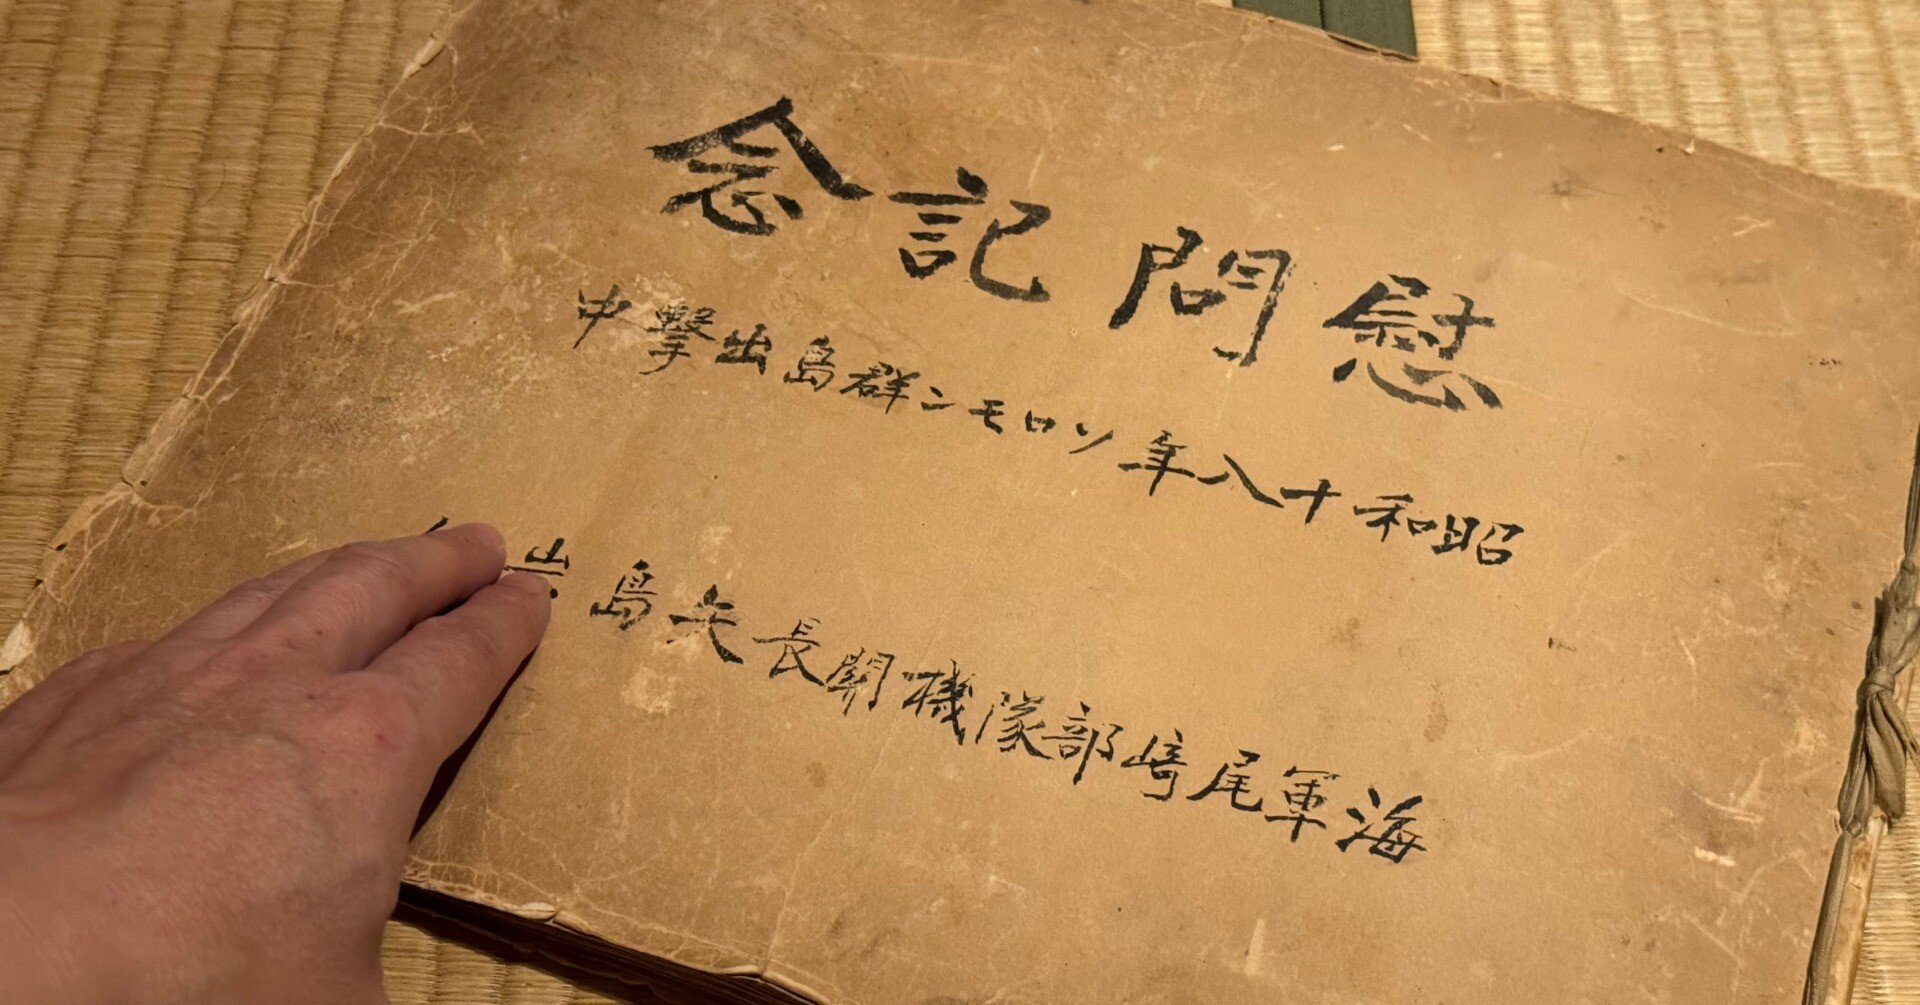 慰問記念
昭和十八年ソロモン群島出撃中
海軍尾崎部隊機関長矢島